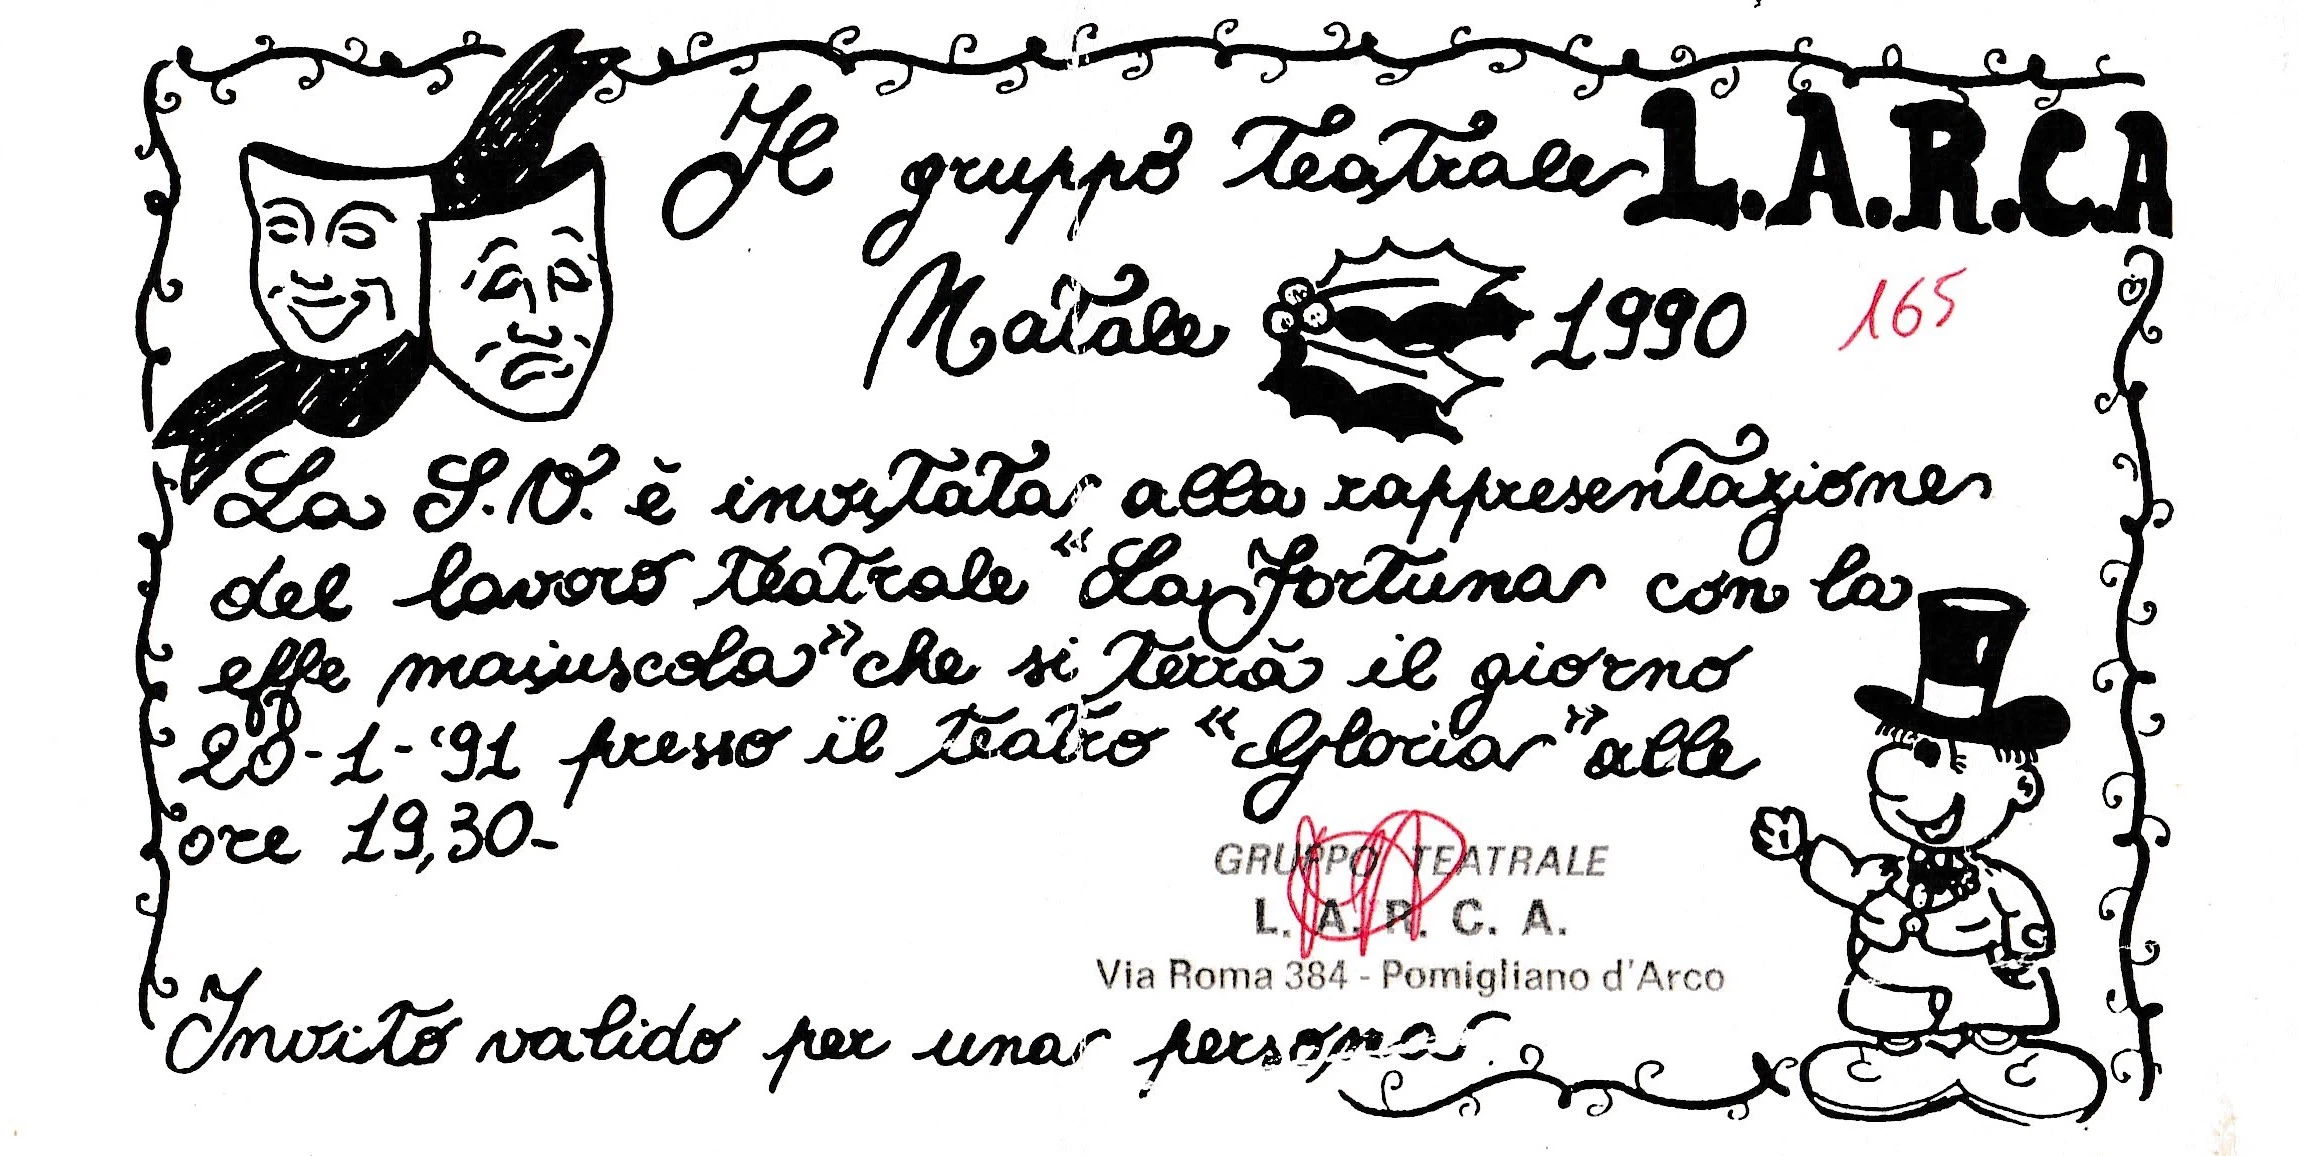 Il gruppo teatrale L.A.R.C.A
Natale 1990 165
La S.V. è invitata alla rappresentazione
del lavoro teatrale "La Fortuna con la
effe maiuscola" che si terrà il giorno
20-1-'91 presso il teatro "Gloria" alle
ore 19,30-
GRUPPO TEATRALE
L. A. R. C. A.
Via Roma 384 - Pomigliano d'Arco
Invito valido per una persona.